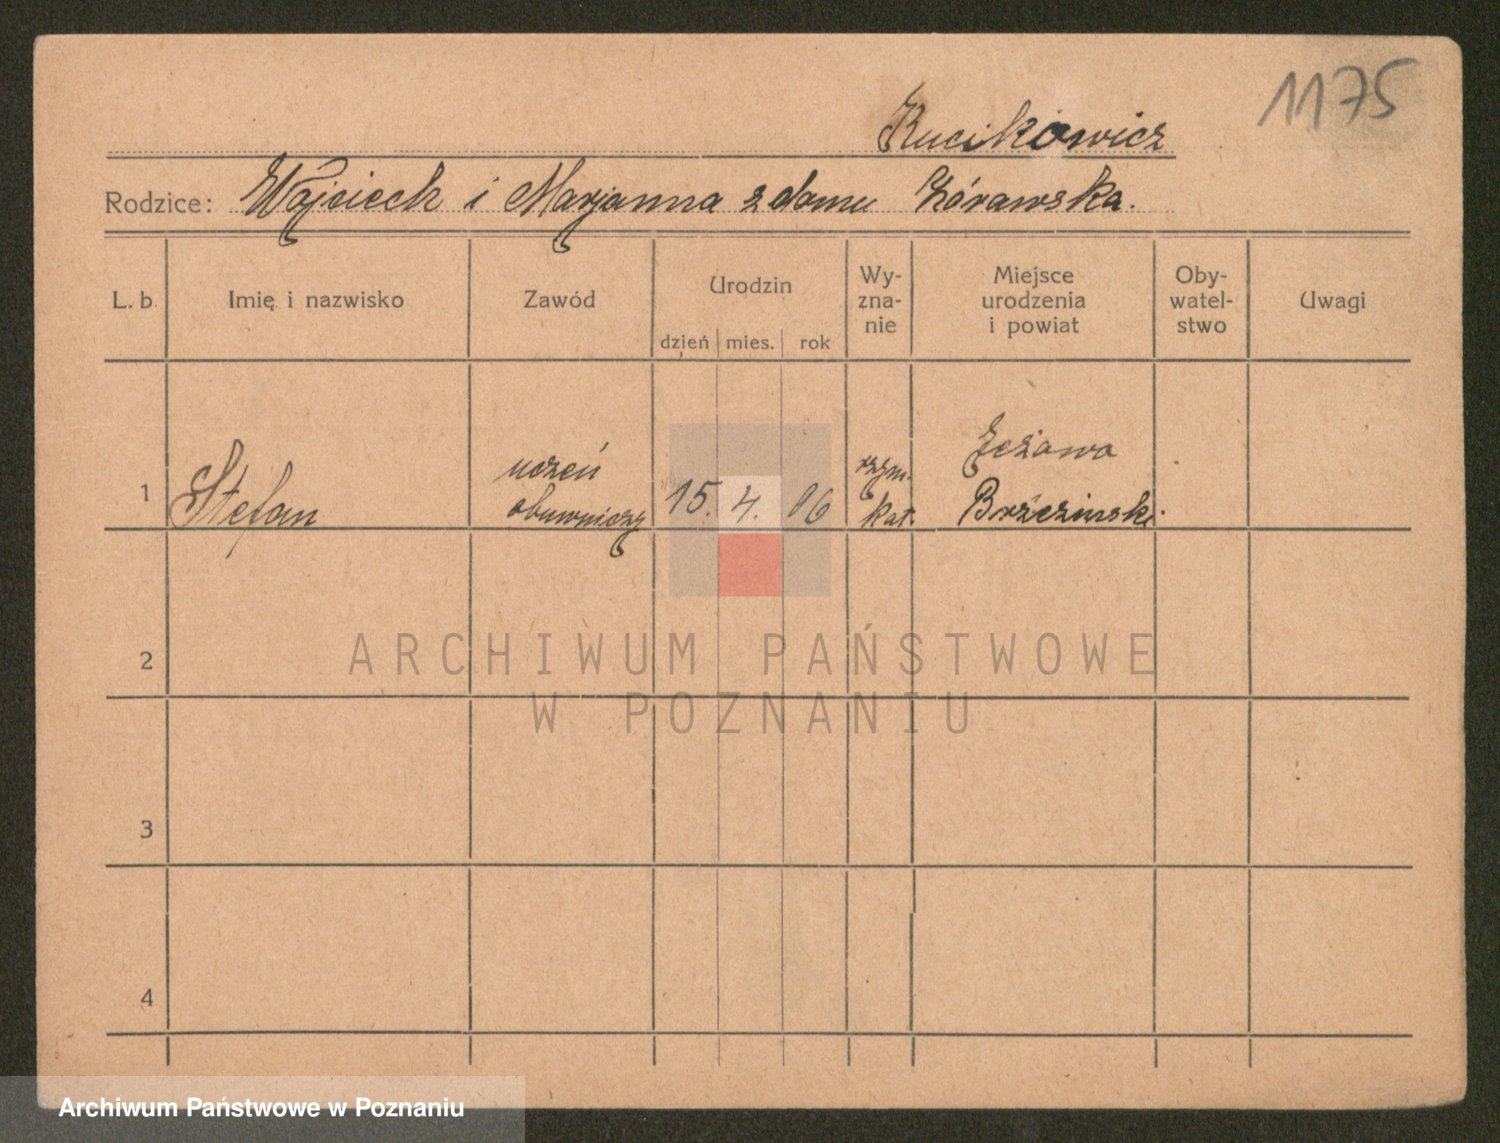 1175
Kucikowicz
Rodzice: Wojciech i Marjanna z domu Żórawska.
L. b. Imię i nazwisko Zawód Urodzin dzień mies. rok Wy-zna-nie Miejsce urodzenia i powiat Oby-watel-stwo Uwagi
1 Stefan uczeń obuwniczy 15. 4. 06 rzym. kat. Jeżawa Brzeziński
2
ARCHIWUM PAŃSTWOWE
W POZNANIU
3
4
Archiwum Państwowe w Poznaniu